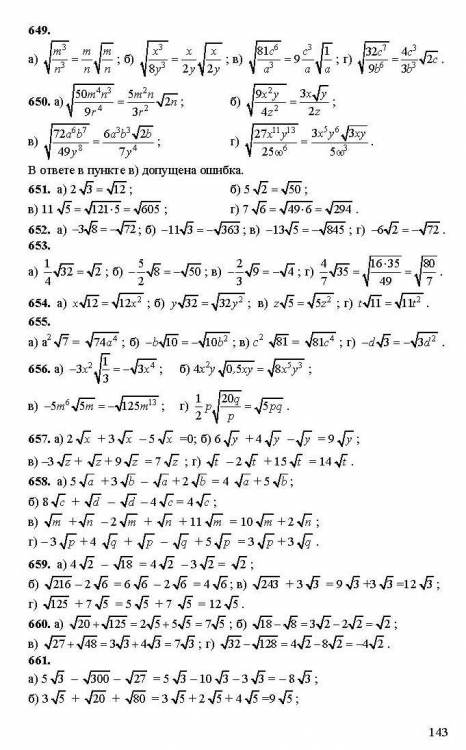 649.
а) √(m³/n³) = m/n √(m/n) ; б) √(x³/8y³) = x/2y √(x/2y) ; в) √(81c⁶/a³) = 9 c³/a √(1/a) ; г) √(32c⁷/9b⁶) = 4c³/3b³ √2c .
650. а) √(50m⁴n³/9r⁴) = 5m²n/3r² √2n ; б) √(9x²y/4z²) = 3x√y/2z ;
в) √(72a⁶b⁷/49y⁸) = 6a³b³√2b/7y⁴ ; г) √(27x¹¹y¹³/25ω⁶) = 3x⁵y⁶√3xy/5ω³ .
В ответе в пункте в) допущена ошибка.
651. а) 2√3 = √12 ; б) 5√2 = √50 ;
в) 11√5 = √121·5 = √605 ; г) 7√6 = √49·6 = √294 .
652. а) −3√8 = −√72 ; б) −11√3 = −√363 ; в) −13√5 = −√845 ; г) −6√2 = −√72 .
653.
а) 1/4 √32 = √2 ; б) −5/2 √8 = −√50 ; в) −2/3 √9 = −√4 ; г) 4/7 √35 = √(16·35/49) = √(80/7) .
654. а) x√12 = √12x² ; б) y√32 = √32y² ; в) z√5 = √5z² ; г) t√11 = √11t² .
655.
а) a²√7 = √74a⁴ ; б) −b√10 = −√10b² ; в) c²√81 = √81c⁴ ; г) −d√3 = −√3d² .
656. а) −3x²√(1/3) = −√3x⁴ ; б) 4x²y√0,5xy = √8x⁵y³ ;
в) −5m⁶√5m = −√125m¹³ ; г) 1/2 p√(20q/p) = √5pq .
657. а) 2√x + 3√x − 5√x =0; б) 6√y + 4√y − √y = 9√y ;
в) −3√z + √z + 9√z = 7√z ; г) √t − 2√t + 15√t = 14√t .
658. а) 5√a + 3√b − √a + 2√b = 4√a + 5√b ;
б) 8√c + √d − √d − 4√c = 4√c ;
в) √m + √n − 2√m + √n + 11√m = 10√m + 2√n ;
г) −3√p + 4√q + √p − √q + 5√p = 3√p + 3√q .
659. а) 4√2 − √18 = 4√2 − 3√2 = √2 ;
б) √216 − 2√6 = 6√6 − 2√6 = 4√6 ; в) √243 + 3√3 = 9√3 +3√3 =12√3 ;
г) √125 + 7√5 = 5√5 + 7√5 = 12√5 .
660. а) √20 + √125 = 2√5 + 5√5 = 7√5 ; б) √18 − √8 = 3√2 − 2√2 = √2 ;
в) √27 + √48 = 3√3 + 4√3 = 7√3 ; г) √32 − √128 = 4√2 − 8√2 = −4√2 .
661.
а) 5√3 − √300 − √27 = 5√3 − 10√3 − 3√3 = −8√3 ;
б) 3√5 + √20 + √80 = 3√5 + 2√5 + 4√5 =9√5 ;
143